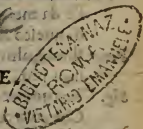 E
BIBLIOTECA NAZ
ROMA
VITTORIO EMANUELE